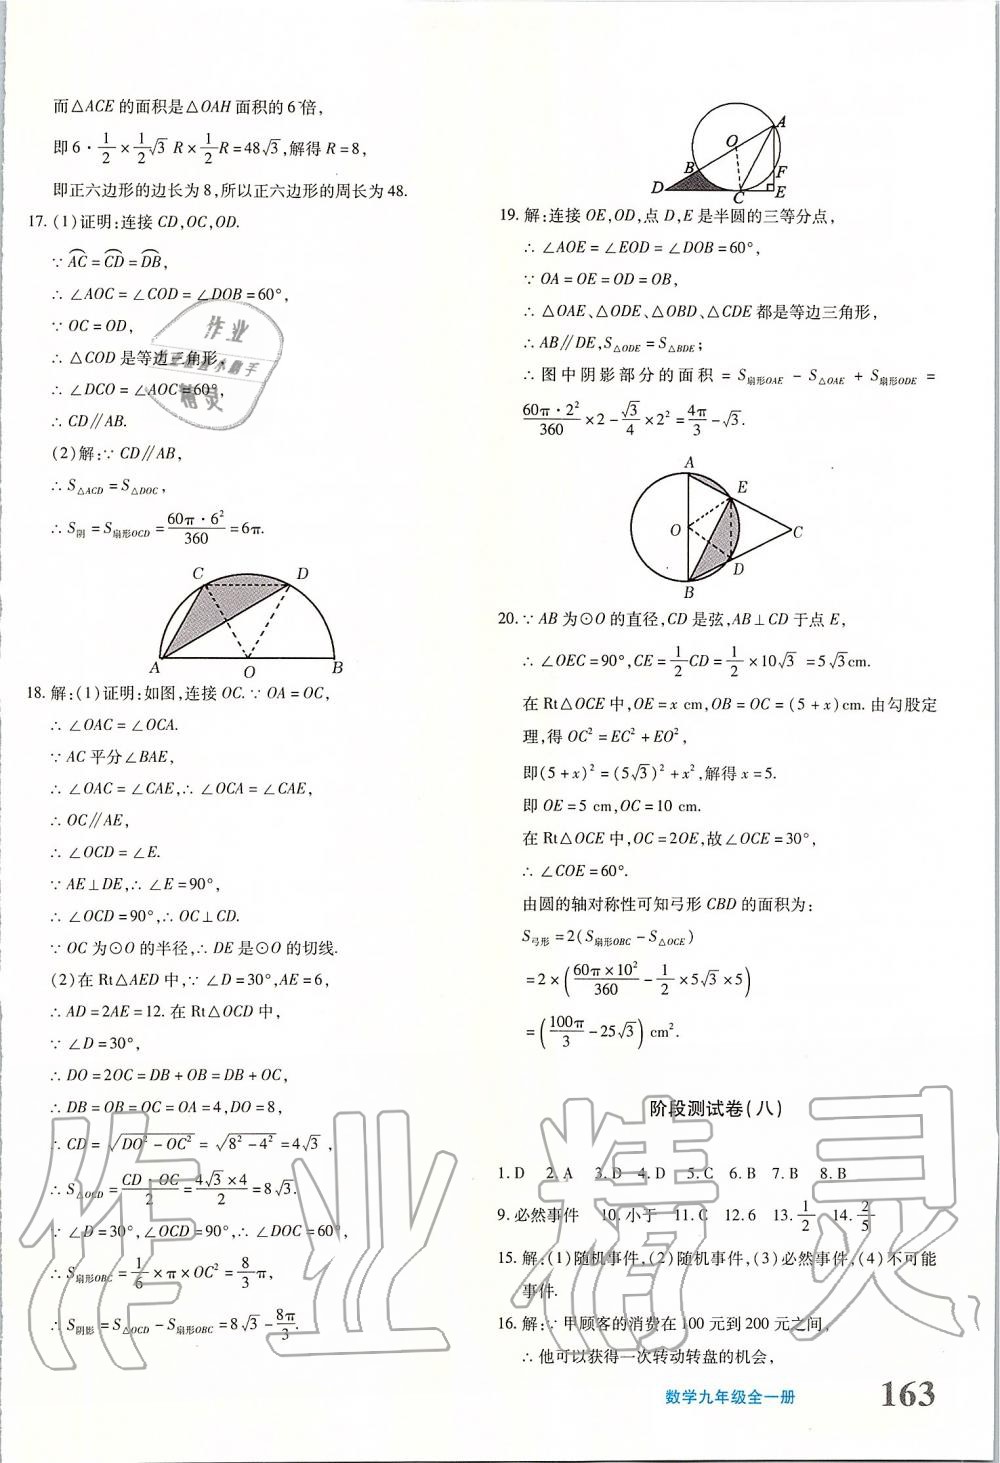 而△ACE 的面积是△OAH 面积的 6 倍,
即 6·1/2×1/2√3 R×1/2R=48√3,解得 R=8,
即正六边形的边长为 8,所以正六边形的周长为 48.
17. (1)证明:连接 CD,OC,OD.
∵ A͡C=C͡D=D͡B,
∴ ∠AOC=∠COD=∠DOB=60°,
∵ OC=OD,
∴ △COD 是等边三角形,
∴ ∠DCO=∠AOC=60°,
∴ CD∥AB.
(2)解:∵ CD∥AB,
∴ S△ACD=S△DOC,
∴ S阴=S扇形OCD=60π·6²/360=6π.
C D
A O B
18. 解:(1)证明:如图,连接 OC.∵ OA=OC,
∴ ∠OAC=∠OCA.
∵ AC 平分∠BAE,
∴ ∠OAC=∠CAE,∴ ∠OCA=∠CAE,
∴ OC∥AE,
∴ ∠OCD=∠E.
∵ AE⊥DE,∴ ∠E=90°,
∴ ∠OCD=90°,∴ OC⊥CD.
∵ OC 为⊙O 的半径,∴ DE 是⊙O 的切线.
(2)在 Rt△AED 中,∵ ∠D=30°,AE=6,
∴ AD=2AE=12.在 Rt△OCD 中,
∵ ∠D=30°,
∴ DO=2OC=DB+OB=DB+OC,
∴ DB=OB=OC=OA=4,DO=8,
∴ CD=√(DO²-OC²)=√(8²-4²)=4√3,
∴ S△OCD=CD·OC/2=4√3×4/2=8√3.
∵ ∠D=30°,∠OCD=90°,∴ ∠DOC=60°,
∴ S扇形OBC=1/6×π×OC²=8/3π,
∴ S阴影=S△OCD-S扇形OBC=8√3-8π/3.
A
O
B
F
D C E
19. 解:连接 OE,OD,点 D,E 是半圆的三等分点,
∴ ∠AOE=∠EOD=∠DOB=60°,
∵ OA=OE=OD=OB,
∴ △OAE、△ODE、△OBD、△CDE 都是等边三角形,
∴ AB∥DE,S△ODE=S△BDE;
∴ 图中阴影部分的面积=S扇形OAE-S△OAE+S扇形ODE=
60π·2²/360×2-√3/4×2²=4π/3-√3.
A
E
O C
D
B
20. ∵ AB 为⊙O 的直径,CD 是弦,AB⊥CD 于点 E,
∴ ∠OEC=90°,CE=1/2CD=1/2×10√3=5√3cm.
在 Rt△OCE 中,OE=x cm,OB=OC=(5+x)cm.由勾股定
理,得 OC²=EC²+EO²,
即(5+x)²=(5√3)²+x²,解得 x=5.
即 OE=5 cm,OC=10 cm.
在 Rt△OCE 中,OC=2OE,故∠OCE=30°,
∴ ∠COE=60°.
由圆的轴对称性可知弓形 CBD 的面积为:
S弓形=2(S扇形OBC-S△OCE)
=2×(60π×10²/360-1/2×5√3×5)
=(100π/3-25√3) cm².
阶段测试卷(八)
1. D 2. A 3. D 4. D 5. C 6. B 7. B 8. B
9. 必然事件 10. 小于 11. C 12. 6 13. 1/2 14. 2/5
15. 解:(1)随机事件,(2)随机事件,(3)必然事件,(4)不可能
事件.
16. 解:∵ 甲顾客的消费在 100 元到 200 元之间,
∴ 他可以获得一次转动转盘的机会,
数学九年级全一册 163
作业精灵